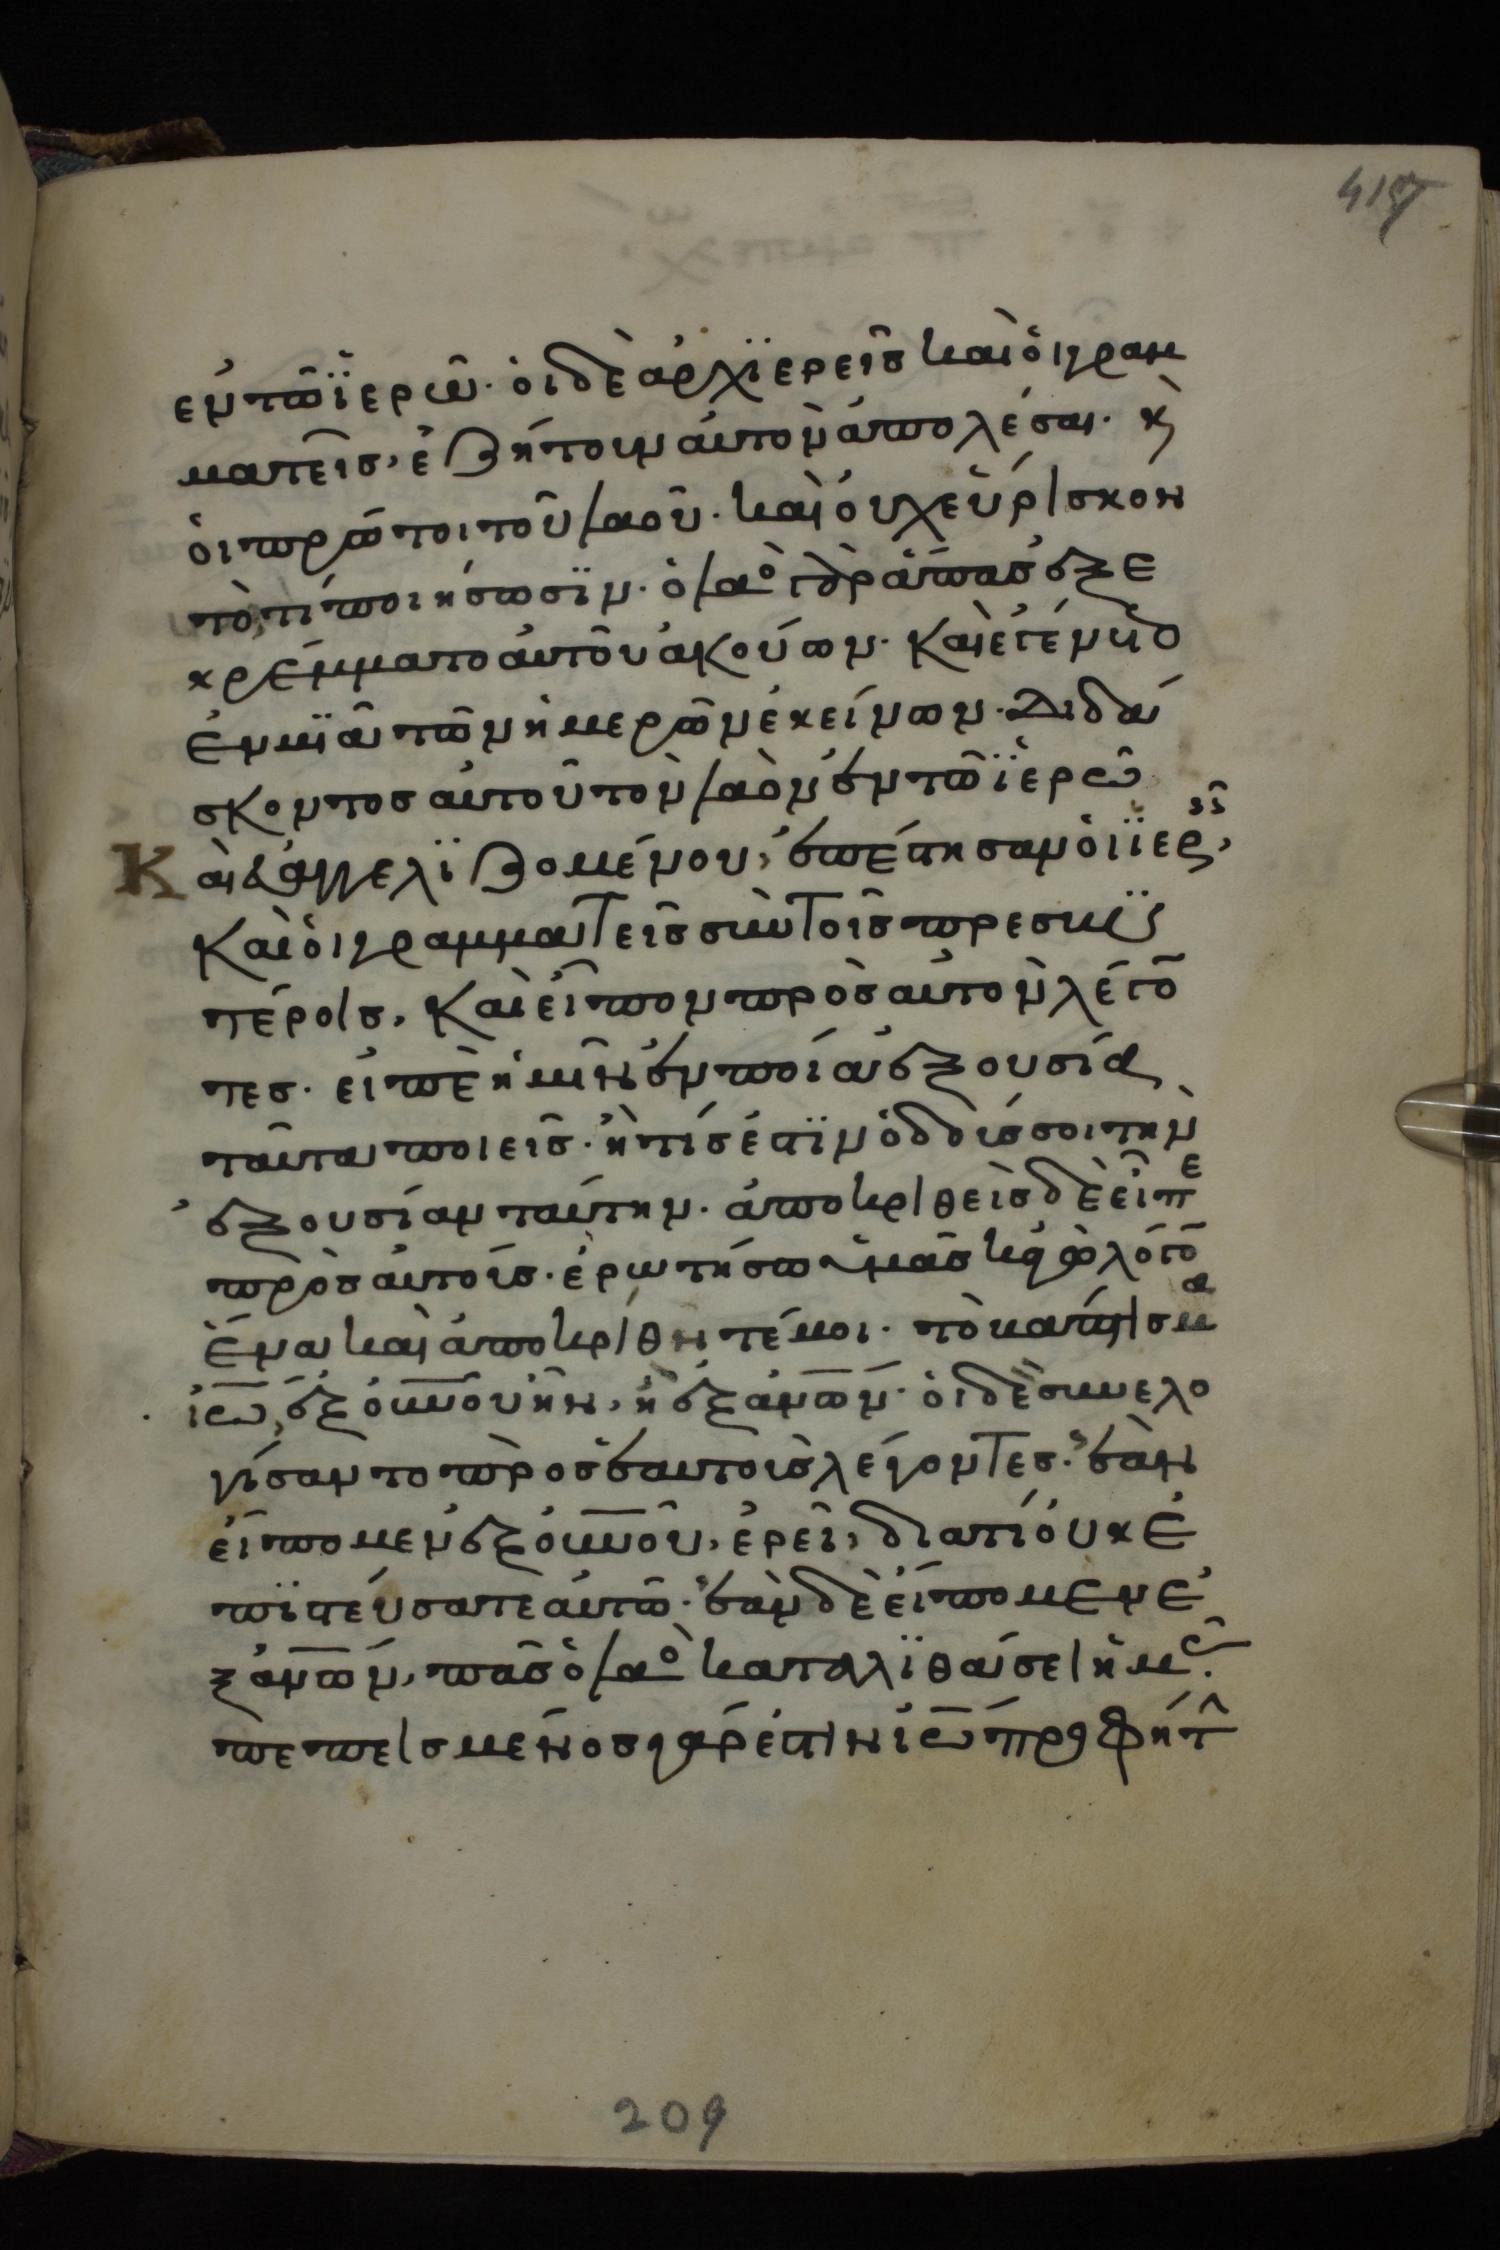 417
ἐν τῶ ϊερῶ· ὁι δὲ ἀρχϊερεῖς καὶ ὁι γραμ
ματεῖς, ἐζήτουν ἀυτὸν ἀπολέσαι· κ̀
ὁι πρῶτοι τοῦ λαοῦ· καὶ ὀυχ εὕρισκον
τὸ, τί ποιήσωσϊν· ὁ λαὸ γὰρ ἅπασ ἐξε
κρέμματο ἀυτοῦ ἀκούων· Καὶ ἐγένετο
ἐν μϊᾶ τῶν ἡμερῶν ἐκείνων· Διδά
σκοντοσ ἀυτοῦ τὸν λαὸν ἐν τῶ ϊερῶ
Καὶ ἐυαγγελϊζομένου, ἐπέστησαν ὁι ϊερεῖς,
Καὶ ὁι γραμματεῖς σὺν τοῖς πρεσβϋ
τέροις, Καὶ εἶπον πρὸσ ἀυτὸν λέγον
τεσ· εἰπὲ ἡμῖν ἐν ποία ἐξουσία
ταῦτα ποιεῖς· ἢ τίσ ἐστϊν ὁ δούσ σοι τὴν
ἐξουσίαν ταύτην· ἀποκριθεὶσ δὲ εἶπε
πρὸσ ἀυτούσ· ἐρωτήσω ὑμᾶς κἀγὼ λόγον
ἕνα καὶ ἀποκρίθητέ μοι· τὸ βάπτισμα
ἰω, ἐξ ὀυνοῦ ἦν, ἢ ἐξ ἀνων· ὁι δὲ συνελο
γίσαντο πρὸσ ἑαυτοὺσ λέγοντεσ· ἐὰν
εἴπομεν ἐξ ὀυνοῦ, ἐρεῖ, διατί ὀυκ ἐ
πϊστεύσατε ἀυτῶ· ἐὰν δὲ εἴπομεν ἐ
ξ ἀνων, πᾶσ ὁ λαὸ καταλϊθάσει ἡμᾶς·
πεπεισμένοσ γάρ ἐστιν ἰω προφήτ
209